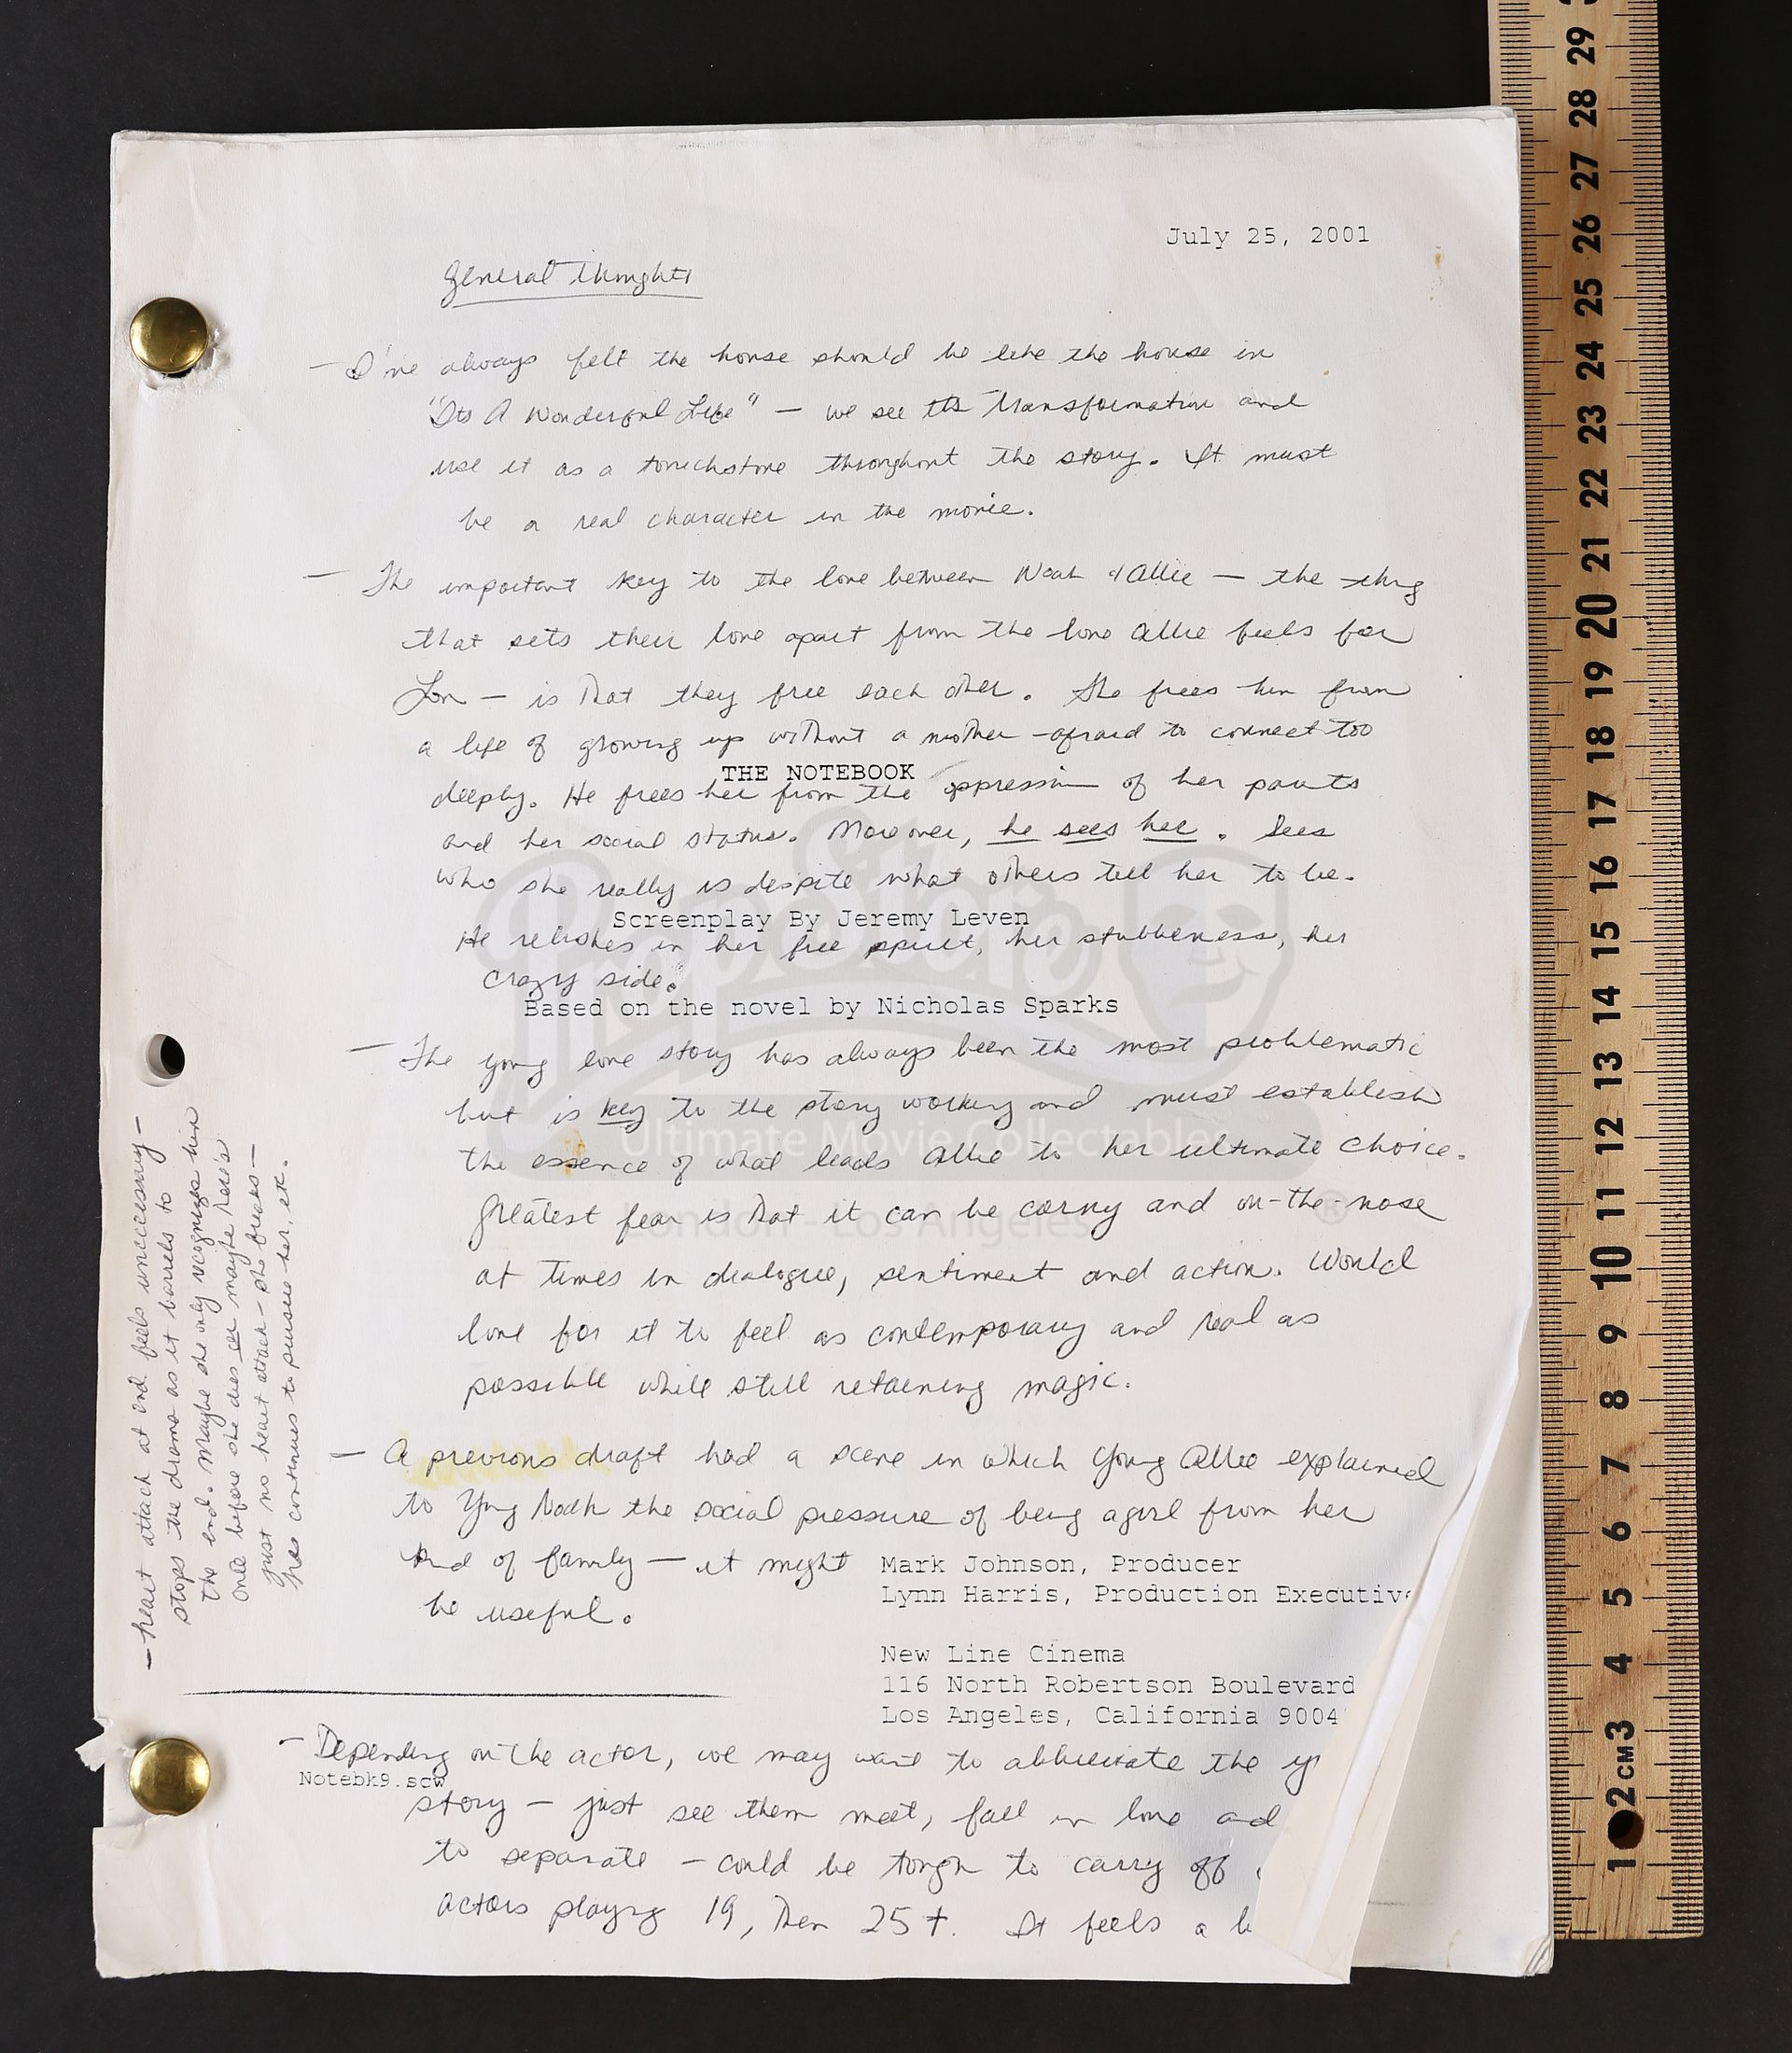 July 25, 2001
General Thoughts
— I've always felt the house should be like the house in
"Its A Wonderful Life" — we see its transformation and
use it as a touchstone throughout the story. It must
be a real character in the movie.
— The important key to the love between Noah & Allie — the thing
that sets their love apart from the love Allie feels for
Lon — is that they free each other. She frees him from
a life of growing up without a mother - afraid to connect too
THE NOTEBOOK
deeply. He frees her from the oppression of her parents
and her social status. Moreover, he sees her. Sees
who she really is despite what others tell her to be.
Screenplay By Jeremy Leven
He relishes in her free spirit, her stubbeness, her
crazy side.
Based on the novel by Nicholas Sparks
— The young love story has always been the most problematic
but is key to the story working and must establish
the essence of what leads Allie to her ultimate choice.
Greatest fear is that it can be corny and on-the-nose
at times in dialogue, sentiment and action. Would
love for it to feel as contemporary and real as
possible while still retaining magic.
— A previous draft had a scene in which Young Allie explained
to Yng Noah the social pressure of being a girl from her
kind of family — it might
be useful.
Mark Johnson, Producer
Lynn Harris, Production Executive
New Line Cinema
116 North Robertson Boulevard
Los Angeles, California 9004
— Depending on the actor, we may want to abbreviate the
Notebk9.scw
story — just see them meet, fall in love and
to separate — could be tough to carry off
actors playing 19, then 25+. It feels a
— heart attack at end feels unnecessary —
stops the drama as it barrels to
the end. Maybe she only recognizes him
once before she dies or maybe there's
just no heart attack - she freaks —
has continues to pursue her, etc.
PropStore
Ultimate Movie Collectables
London - Los Angeles
®
29
28
27
26
25
24
23
22
21
20
19
18
17
16
15
14
13
12
11
10
9
8
7
6
5
4
3
CM
2
1